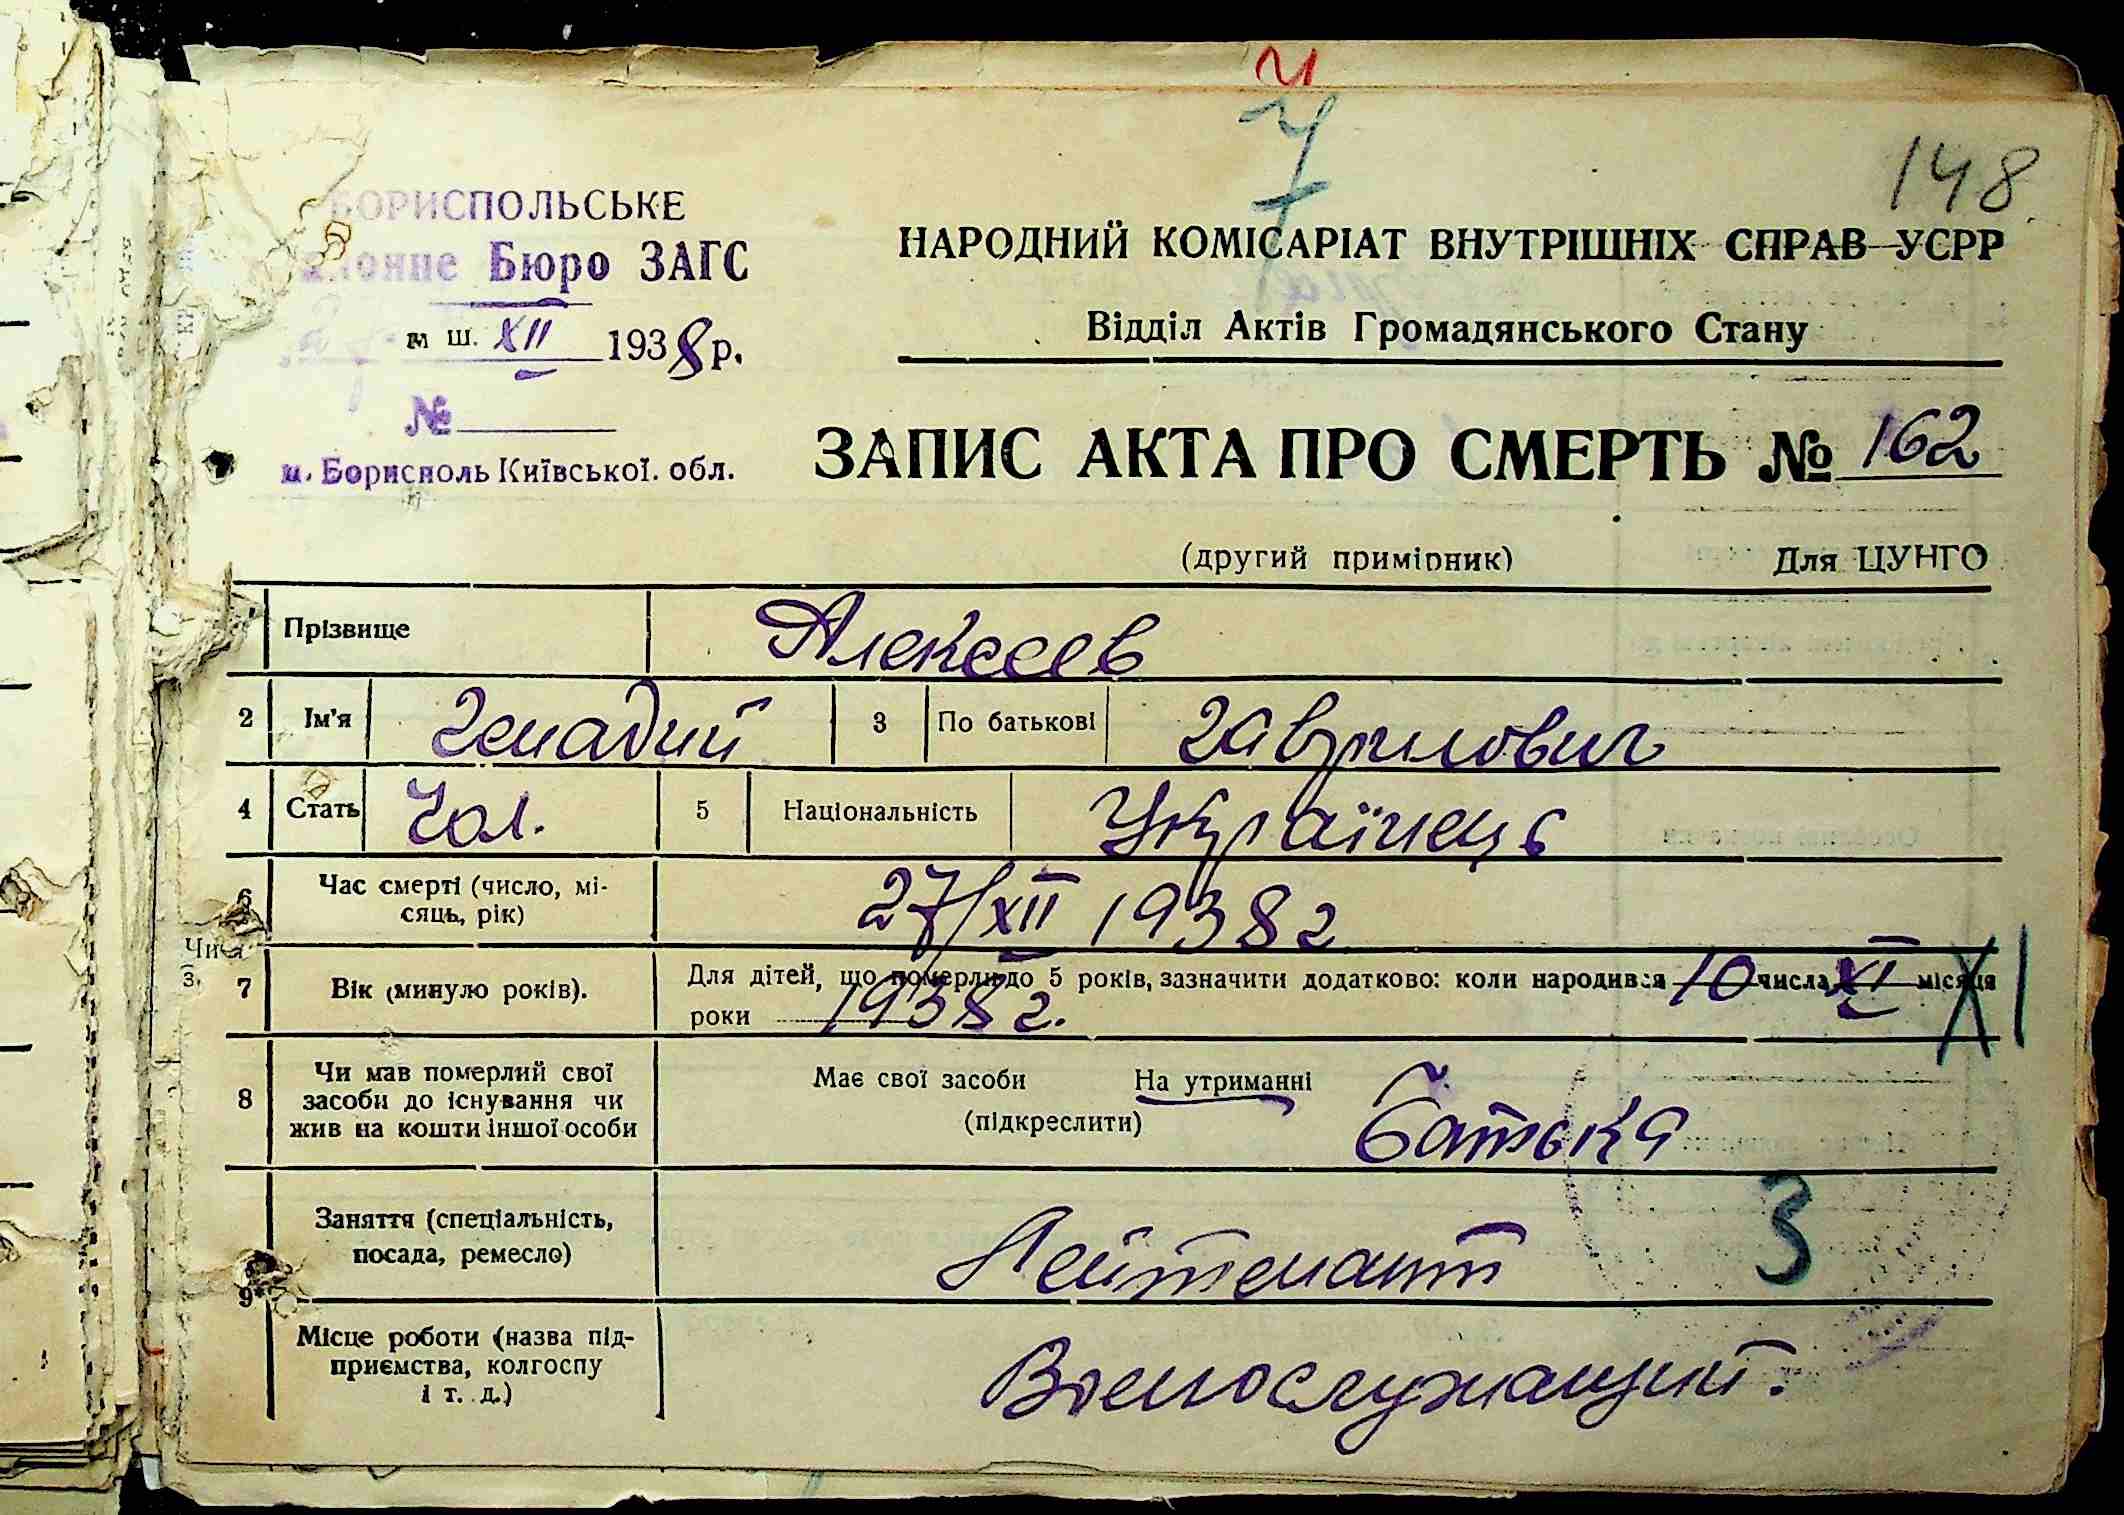 148
БОРИСПОЛЬСЬКЕ
Бюро ЗАГС
м ш. XII 1938 р.
№
м. Борисполь Київської. обл.
НАРОДНИЙ КОМІСАРІАТ ВНУТРІШНІХ СПРАВ УСРР
Відділ Актів Громадянського Стану
ЗАПИС АКТА ПРО СМЕРТЬ № 162
(другий примірник) Для ЦУНГО
Прізвище Алексеев
2 Ім'я Генадий 3 По батькові Гаврилович
4 Стать Чол. 5 Національність Українець
6 Час смерті (число, мі-
сяць, рік) 27/XII 1938 г
7 Вік (минуло років). Для дітей, що померли до 5 років, зазначити додатково: коли народився 10 числа XI місяця XI
роки 1938 г.
8 Чи мав померлий свої
засоби до існування чи
жив на кошти іншої особи
Має свої засоби На утриманні
(підкреслити) батька
3
9 Заняття (спеціальність,
посада, ремесло) Лейтенант
Місце роботи (назва під-
приємства, колгоспу
і т. д.) Военослужащий.